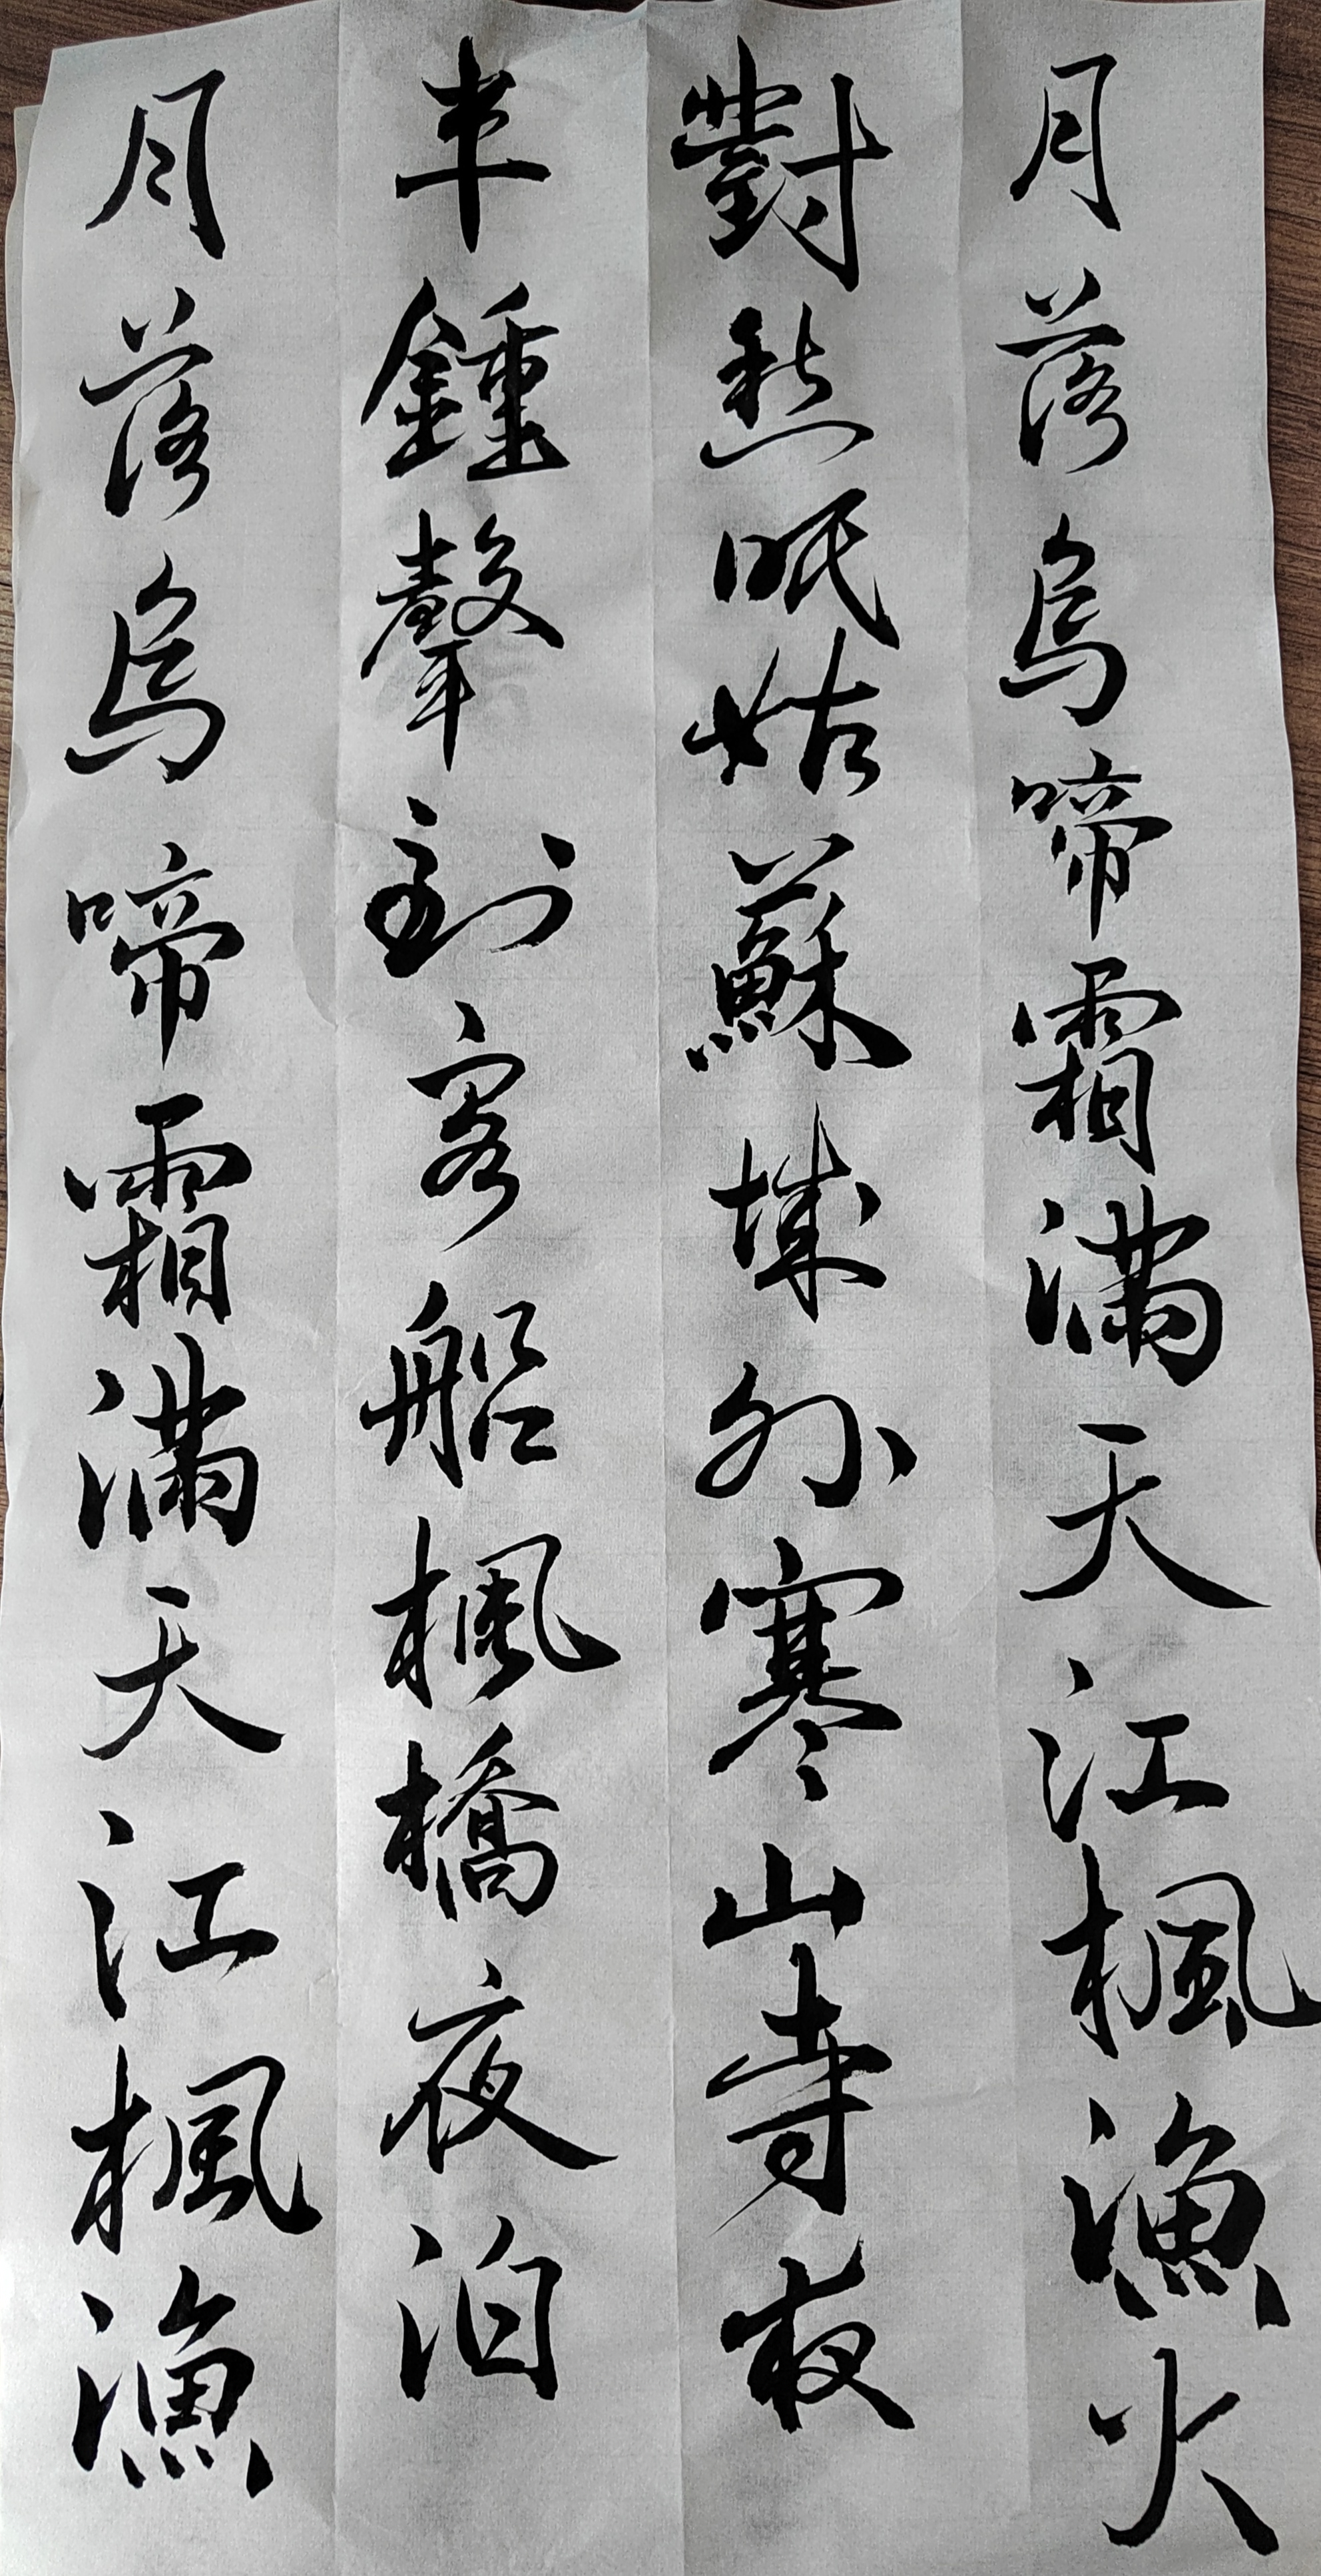 月落烏啼霜滿天江楓漁火
對愁眠姑蘇城外寒山寺夜
半鍾聲到客船楓橋夜泊
月落烏啼霜滿天江楓漁